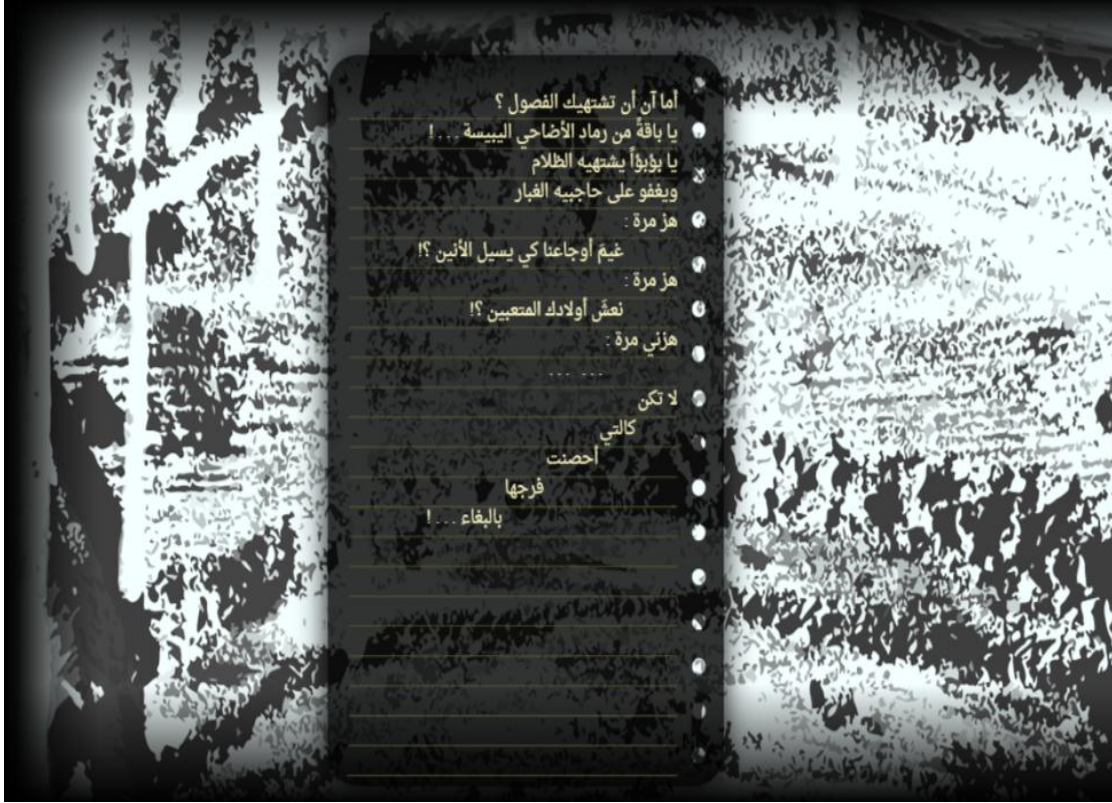 أما آن أن تشتهيك الفصول ؟
يا باقةً من رماد الأضاحي اليبيسة . . . !
يا بؤبؤاً يشتهيه الظلام
ويغفو على حاجبيه الغبار
هزْ مرة :
غيمَ أوجاعنا كي يسيل الأنين ؟!
هزْ مرة :
نعشَ أولادك المتعبين ؟!
هزني مرة :
... ...
لا تكن
كالتي
أحصنت
فرجها
بالبغاء . . . !